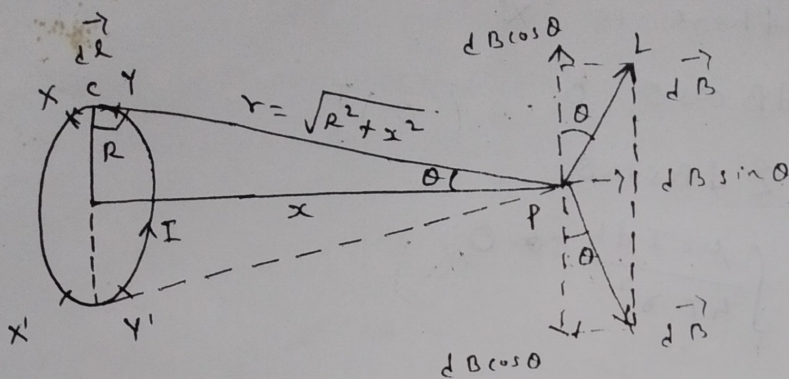 dl→
X C Y
R
r = √(R² + x²)
θ
x
I
P
X' Y'
dB cosθ
L
dB→
θ
dB sinθ
θ
dB→
dB cosθ